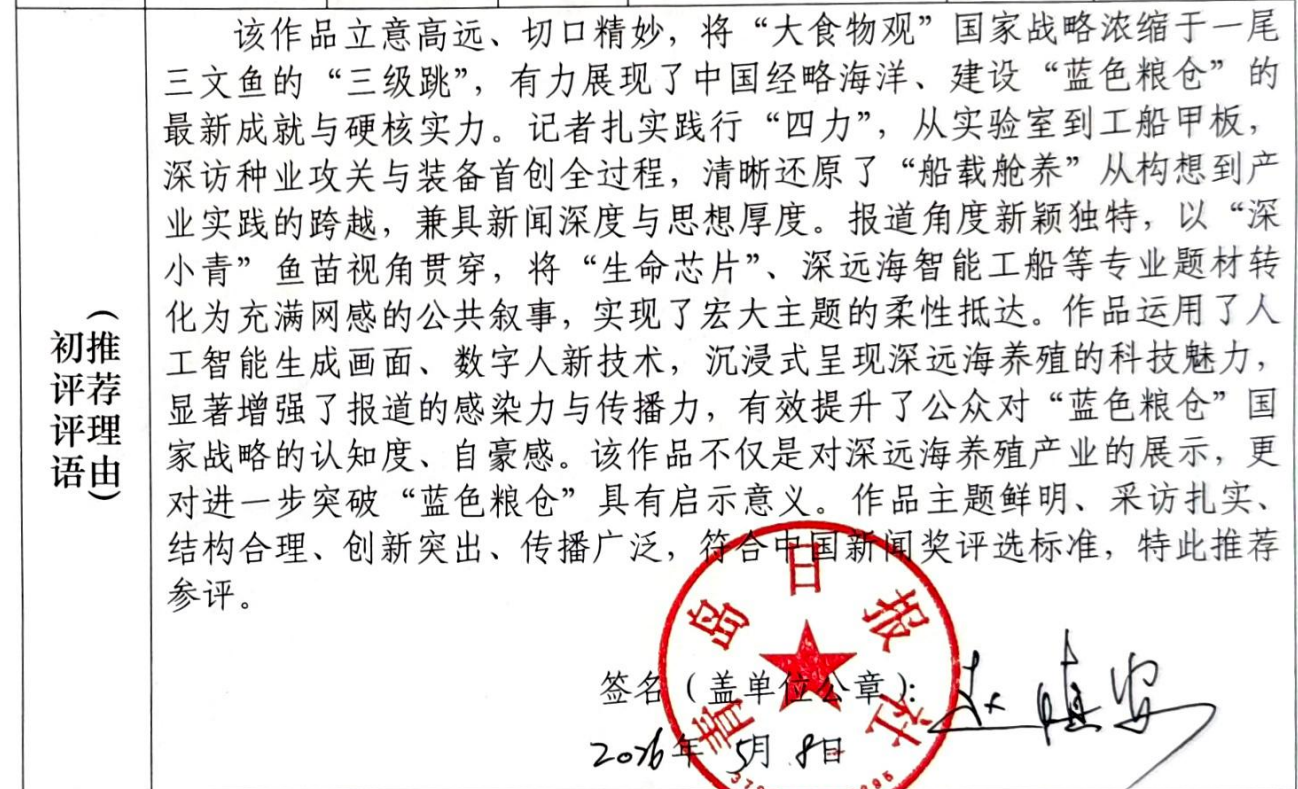 初评评语
（推荐理由）
该作品立意高远、切口精妙，将“大食物观”国家战略浓缩于一尾
三文鱼的“三级跳”，有力展现了中国经略海洋、建设“蓝色粮仓”的
最新成就与硬核实力。记者扎实践行“四力”，从实验室到工船甲板，
深访种业攻关与装备首创全过程，清晰还原了“船载舱养”从构想到产
业实践的跨越，兼具新闻深度与思想厚度。报道角度新颖独特，以“深
小青”鱼苗视角贯穿，将“生命芯片”、深远海智能工船等专业题材转
化为充满网感的公共叙事，实现了宏大主题的柔性抵达。作品运用了人
工智能生成画面、数字人新技术，沉浸式呈现深远海养殖的科技魅力，
显著增强了报道的感染力与传播力，有效提升了公众对“蓝色粮仓”国
家战略的认知度、自豪感。该作品不仅是对深远海养殖产业的展示，更
对进一步突破“蓝色粮仓”具有启示意义。作品主题鲜明、采访扎实、
结构合理、创新突出、传播广泛，符合中国新闻奖评选标准，特此推荐
参评。
青岛日报社
签名（盖单位公章）：
2026年 5月 8日